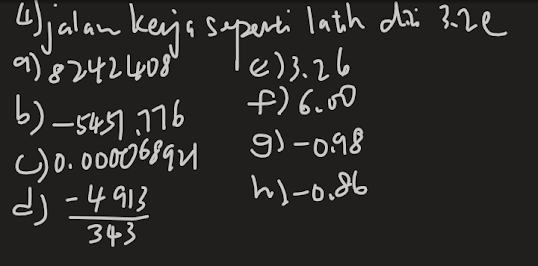 4) jalan kerja seperti latih diri 3.2e
a) 82421408 e) 3.26
b) -5451.776 f) 6.00
c) 0.000068921 g) -0.98
d) -4913/343 h) -0.86